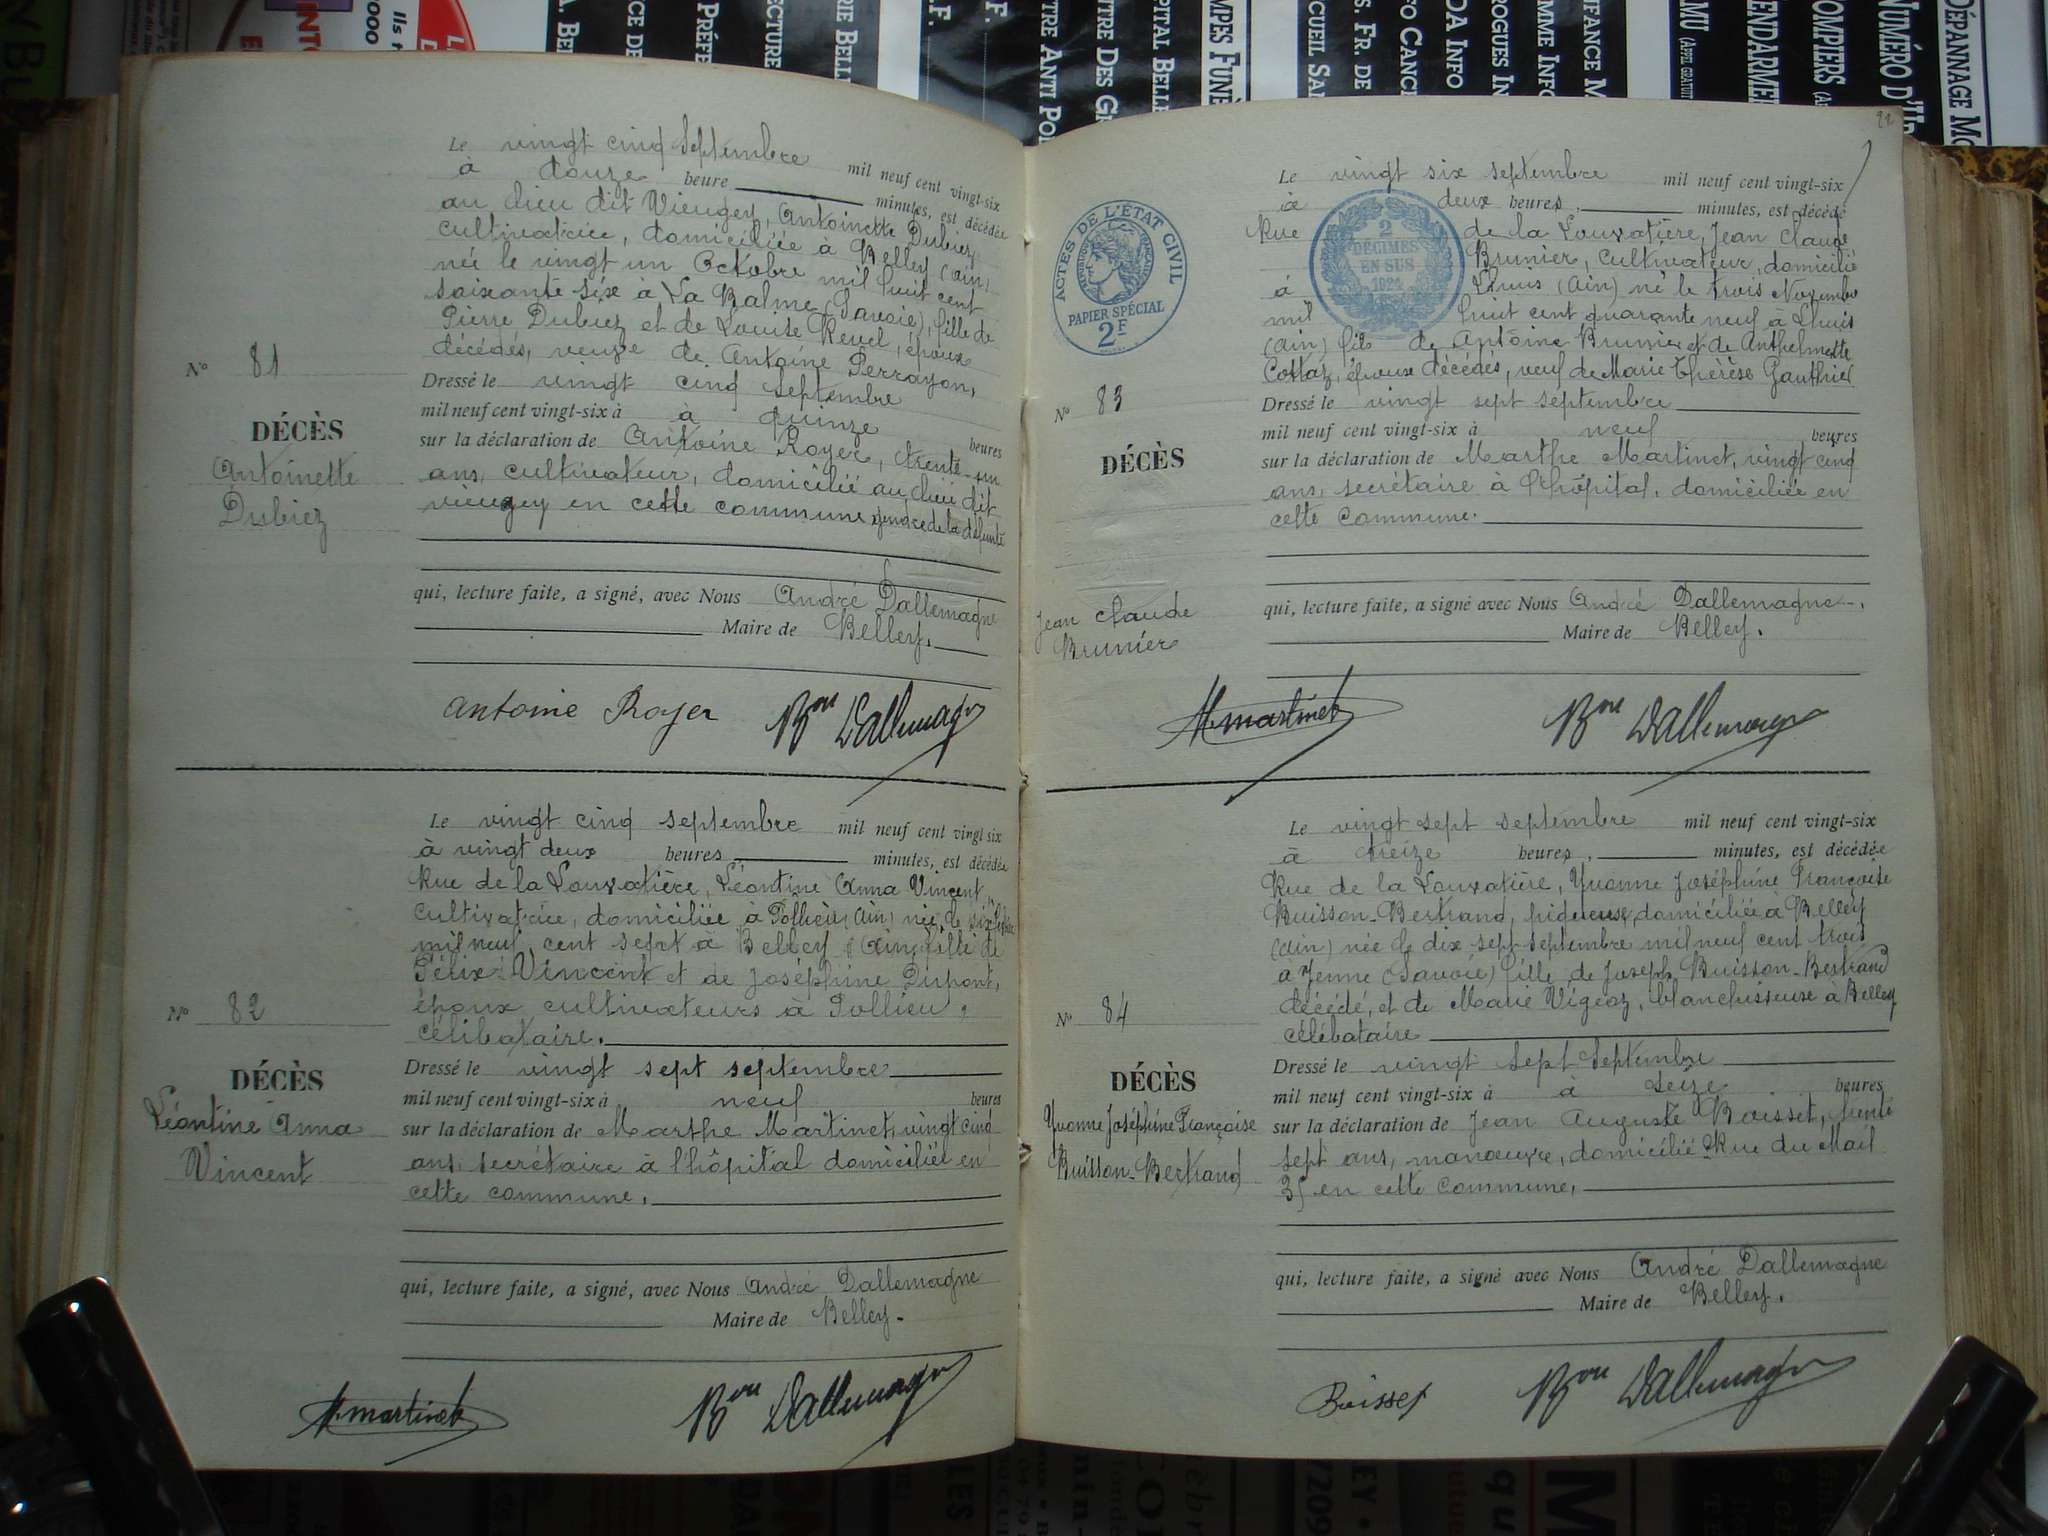 Le vingt cinq Septembre mil neuf cent vingt-six
à douze heure minutes, est décédée
au lieu dit Vieugey, Antoinette Dubiez,
cultivatrice, domiciliée à Belley (Ain)
née le vingt un Octobre mil huit cent
soixante six à La Balme (Savoie), fille de
Pierre Dubiez et de Louise Revel, époux
décédés, veuve de Antoine Perrayon,
Nº 81
Dressé le vingt cinq Septembre
mil neuf cent vingt-six à à quinze heures
DÉCÈS
Antoinette
Dubiez
sur la déclaration de Antoine Royer, trente-un
ans, cultivateur, domicilié au lieu dit
vieugey en cette commune gendre de la défunte
qui, lecture faite, a signé, avec Nous André Dallemagne
Maire de Belley.
Antoine Royer Bon Dallemagne
Le vingt cinq septembre mil neuf cent vingt six
à vingt deux heures minutes, est décédée
Rue de la Louvatière, Léontine Anna Vincent,
cultivatrice, domiciliée à Pollieu (Ain) née le six
mil neuf cent sept à Belley (Ain) fille de
Félix Vincent et de Joséphine Dupont,
époux cultivateurs à Pollieu,
célibataire.
Nº 82
DÉCÈS
Léontine Anna
Vincent
Dressé le vingt sept septembre
mil neuf cent vingt-six à neuf heures
sur la déclaration de Marthe Martinet, vingt cinq
ans, secrétaire à l'hôpital domiciliée en
cette commune.
qui, lecture faite, a signé, avec Nous André Dallemagne
Maire de Belley.
M. Martinet Bon Dallemagne
22
Le vingt six septembre mil neuf cent vingt-six
à deux heures minutes, est décédé
Rue de la Louvatière, Jean Claude
Brunier, cultivateur, domicilié
à Lhuis (Ain) né le trois Novembre
mil huit cent quarante neuf à Lhuis
(Ain) fils de Antoine Brunier et de Anthelmette
Cottaz, époux décédés, veuf de Marie Thérèse Gauthier
ACTES DE L'ÉTAT CIVIL
PAPIER SPÉCIAL
2F
2
DÉCIMES
EN SUS
Nº 83
DÉCÈS
Jean Claude
Brunier
Dressé le vingt sept septembre
mil neuf cent vingt-six à neuf heures
sur la déclaration de Marthe Martinet, vingt cinq
ans, secrétaire à l'hôpital, domiciliée en
cette commune.
qui, lecture faite, a signé avec Nous André Dallemagne
Maire de Belley.
M. Martinet Bon Dallemagne
Le vingt sept septembre mil neuf cent vingt-six
à treize heures, minutes, est décédée
Rue de la Louvatière, Yvonne Joséphine Françoise
Buisson-Bertrand, domiciliée à Belley
(Ain) née le dix sept septembre mil neuf cent trois
à Yenne (Savoie) fille de Joseph Buisson-Bertrand
décédé, et de Marie Vigoz, blanchisseuse à Belley
célébataire
Nº 84
DÉCÈS
Yvonne Joséphine Françoise
Buisson-Bertrand
Dressé le vingt sept septembre
mil neuf cent vingt-six à à seize heures
sur la déclaration de Jean Auguste Boisset, trente
sept ans, manœuvre, domicilié Rue du Mail
en cette commune,
qui, lecture faite, a signé avec Nous André Dallemagne
Maire de Belley.
Boisset Bon Dallemagne